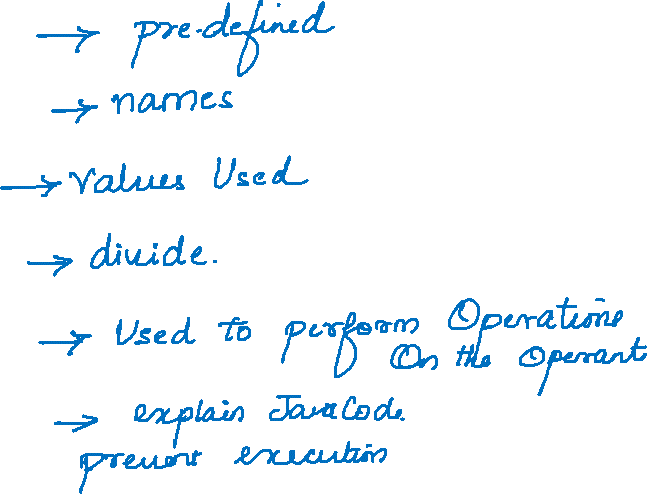 → pre-defined
→ names
→ Values Used
→ divide.
→ Used to perform Operations
On the Operant
→ explain Java Code.
prevent execution